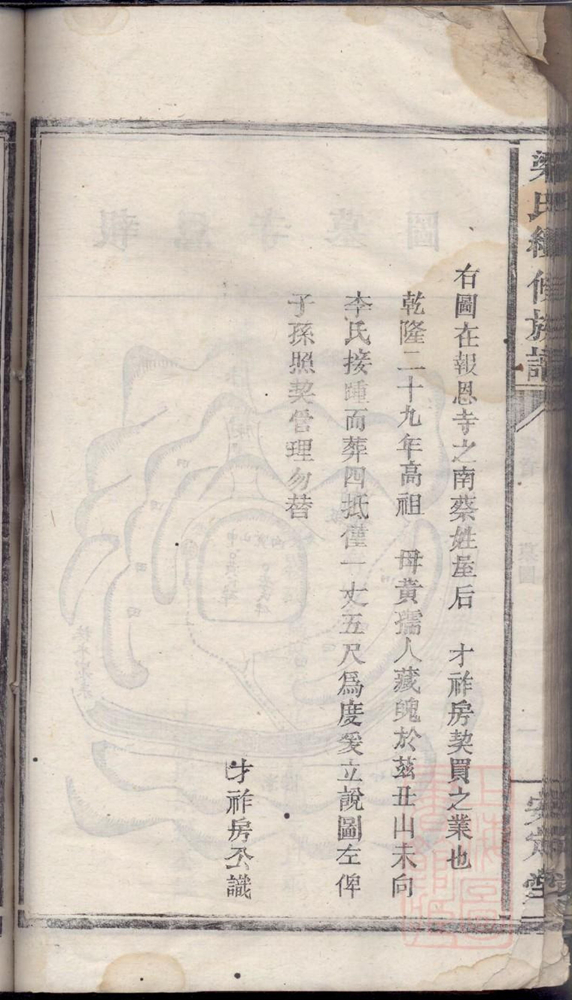 梁氏經修族譜
右圖在報恩寺之南蔡姓屋后 才祚房契買之業也
乾隆二十九年高祖 母黃孺人藏魄於茲丑山未向
李氏接踵而葬四抵僅一丈五尺為度爰立說圖左俾
子孫照契管理勿替
才祚房公識
安定堂